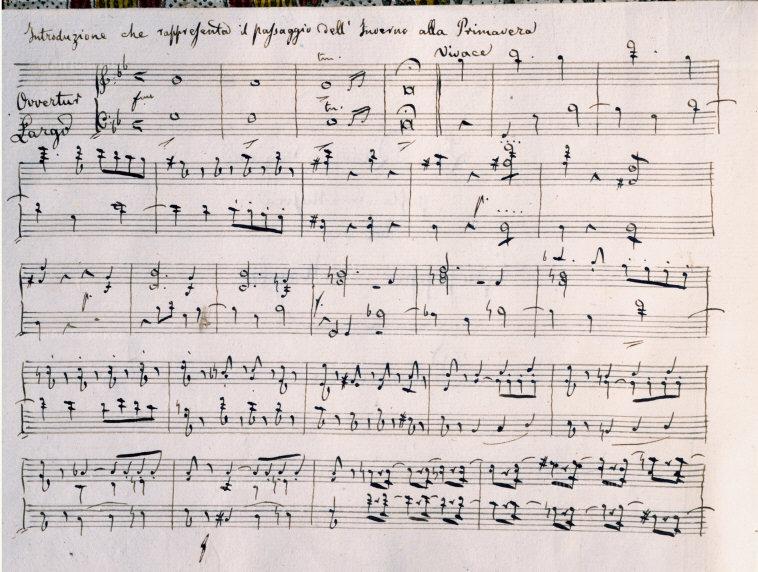 Introduzione che rappresenta il passaggio dell' Inverno alla Primavera
Vivace
tm.
Overtur
tm.
Largo